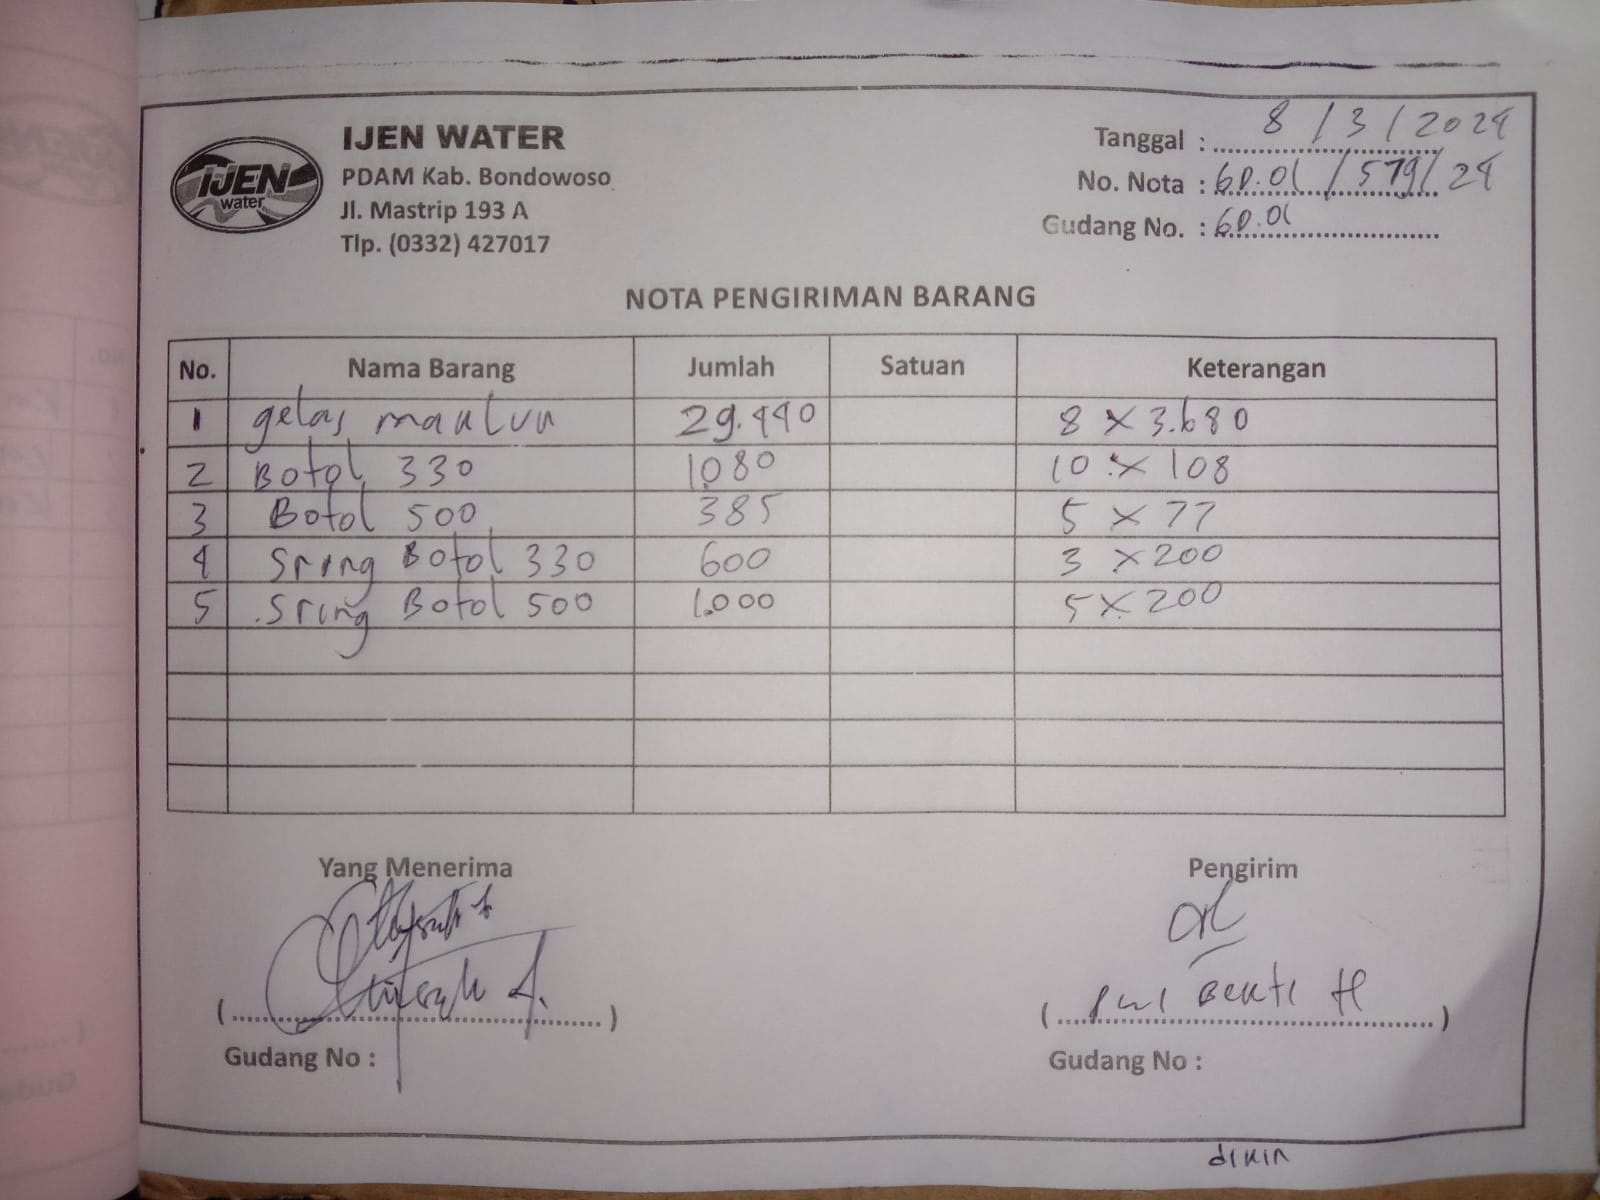 IJEN WATER
PDAM Kab. Bondowoso
Jl. Mastrip 193 A
Tlp. (0332) 427017
IJEN
water
Tanggal : 8 / 3 / 2024
No. Nota : 60.01 / 579 / 24
Gudang No. : 60.01
NOTA PENGIRIMAN BARANG
No. Nama Barang Jumlah Satuan Keterangan
1 gelas maulun 29.440 8 x 3.680
2 Botol 330 1.080 10 x 108
3 Botol 500 385 5 x 77
4 Sring Botol 330 600 3 x 200
5 Sring Botol 500 1.000 5 x 200
Yang Menerima Pengirim
( ) ( )
Gudang No : Gudang No :
dikin